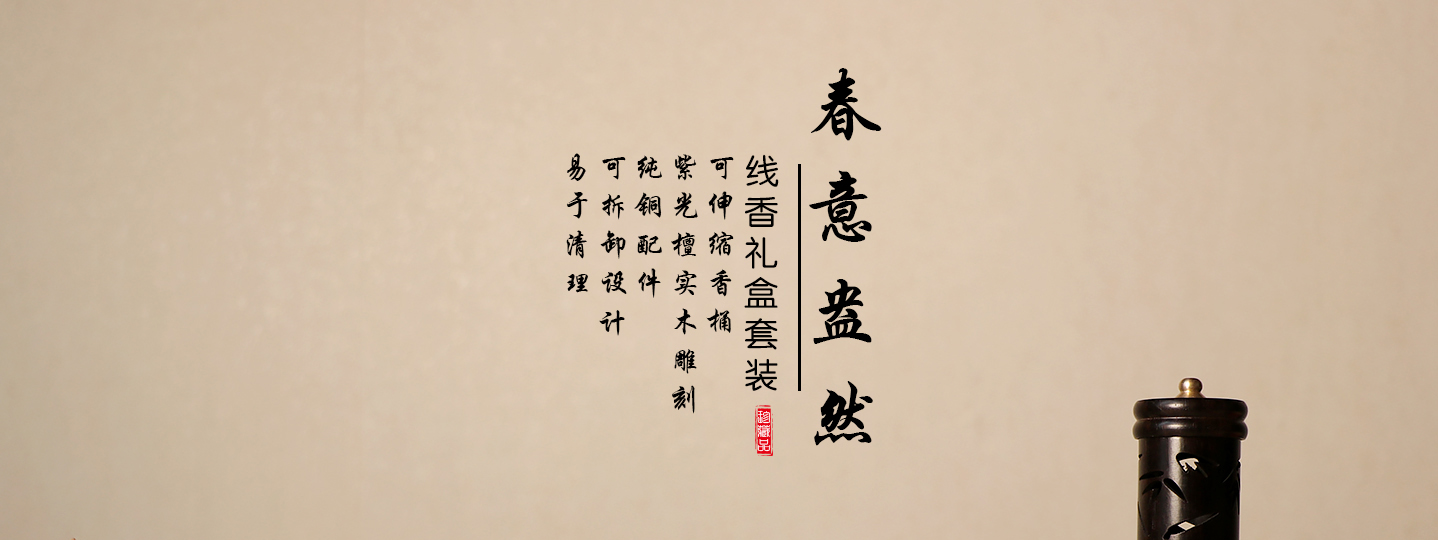 春意盎然
线香礼盒套装
珍藏品
可伸缩香桶
紫光檀实木雕刻
纯铜配件
可拆卸设计
易于清理